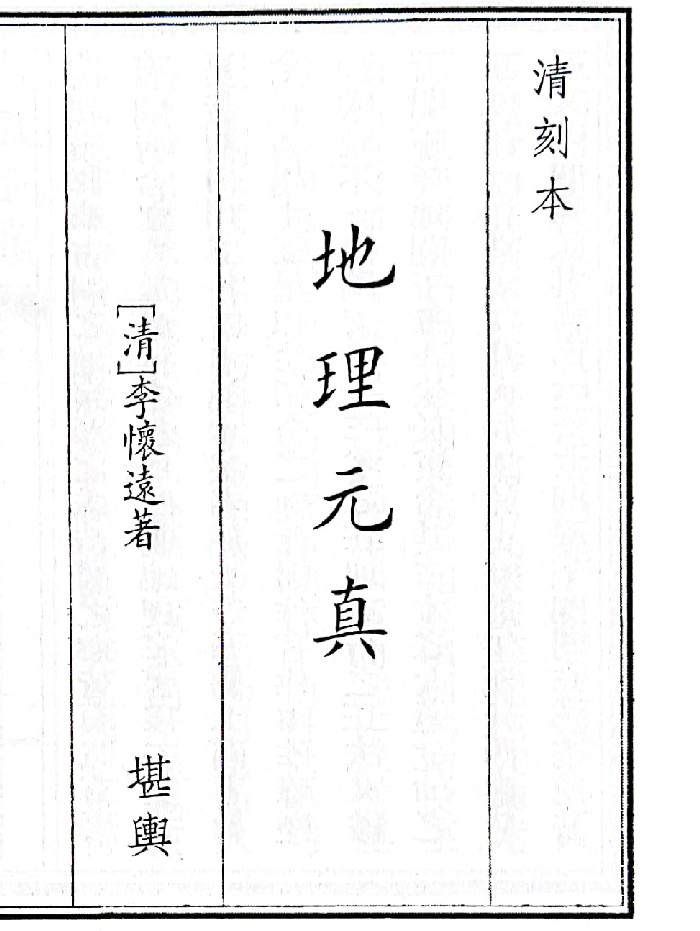 清刻本
地理元真
[清]李懷遠著
堪輿